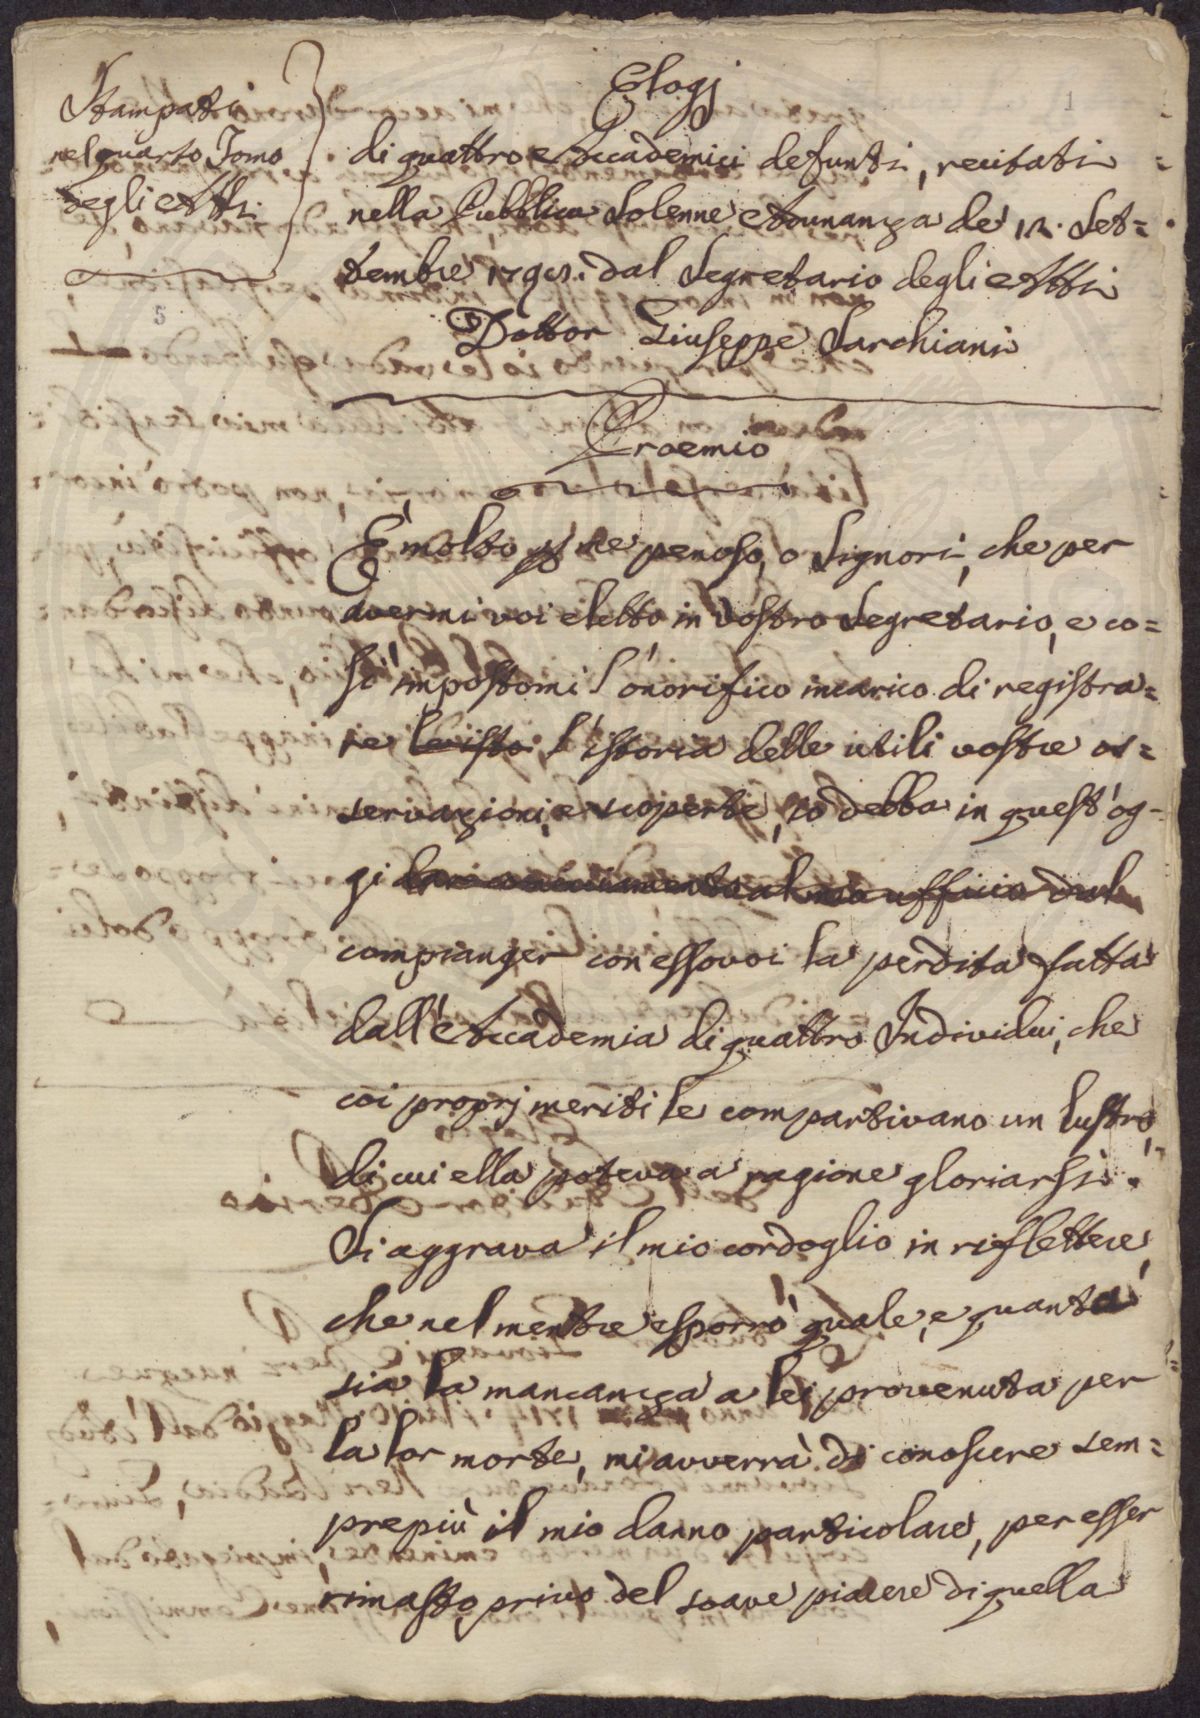 1
Stampati
nel quarto Tomo
degli Atti
5
Elogj
di quattro Accademici defunti, recitati
nella Pubblica Solenne Adunanza de' 12. Set=
tembre dal Segretario degli Atti
Dottor Giuseppe Sarchiani
Proemio
È molto per me penoso, o Signori, che per
avermi voi eletto in Vostro Segretario, e co=
sì impostomi l'onorifico incarico di registra=
re l'istoria delle utili vostre os=
servazioni, e scoperte, io debba in quest'og-
gi
compianger con essovoi la perdita fatta
dall'Accademia di quattro Individui, che
coi proprj meriti le compartivano un lustro,
di cui ella poteva a ragione gloriarsi.
Si aggrava il mio cordoglio in riflettere,
che nel mentre esporrò quale, e quanta
sia la mancanza a lei provenuta per
la lor morte, mi avverrà di conoscere sem=
prepiù il mio danno particolare, per esser
rimasto privo del soave piacere di quella